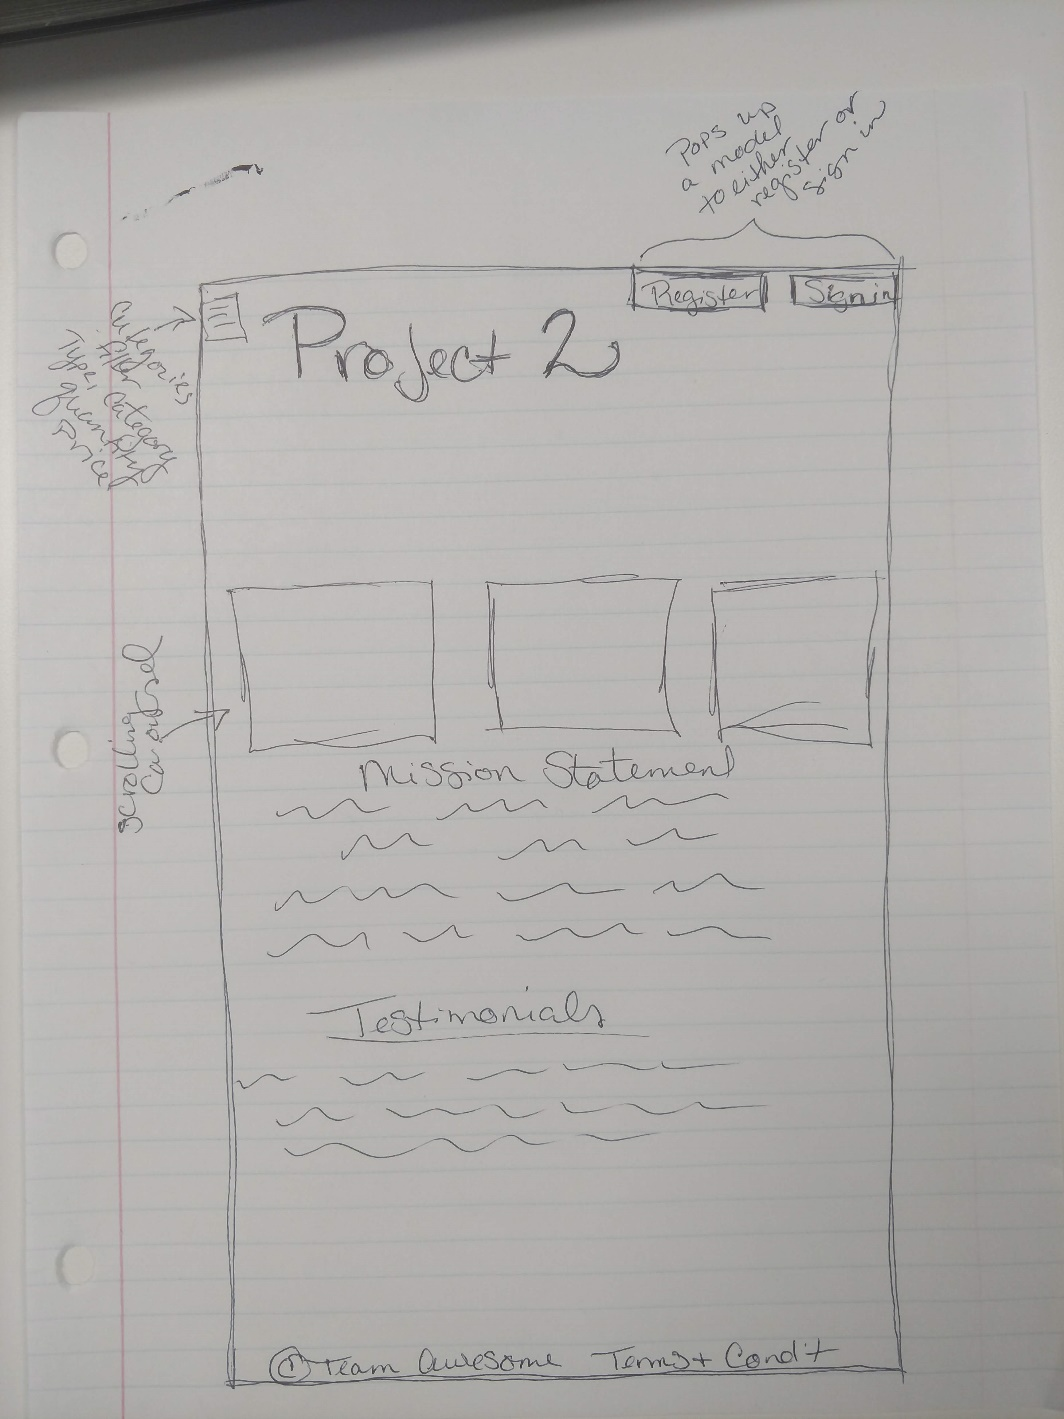 Pops up
a model
to either
register or
sign in
Register
Sign in
Categories
filter category
Type,
quantity
Price
Project 2
Scrolling
Carousel
Mission Statement
Testimonials
© Team Awesome Terms + Condit